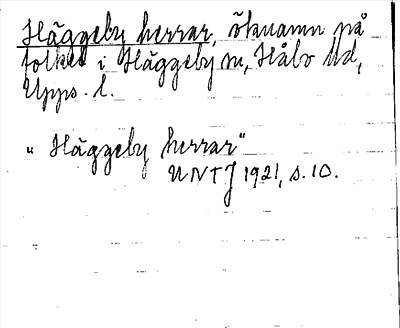 Häggeby herrar, öknamn på
folket i Häggeby sn, Håbo hd,
Upps. l.
„ Häggeby herrar"
UNTJ 1921, s. 10.